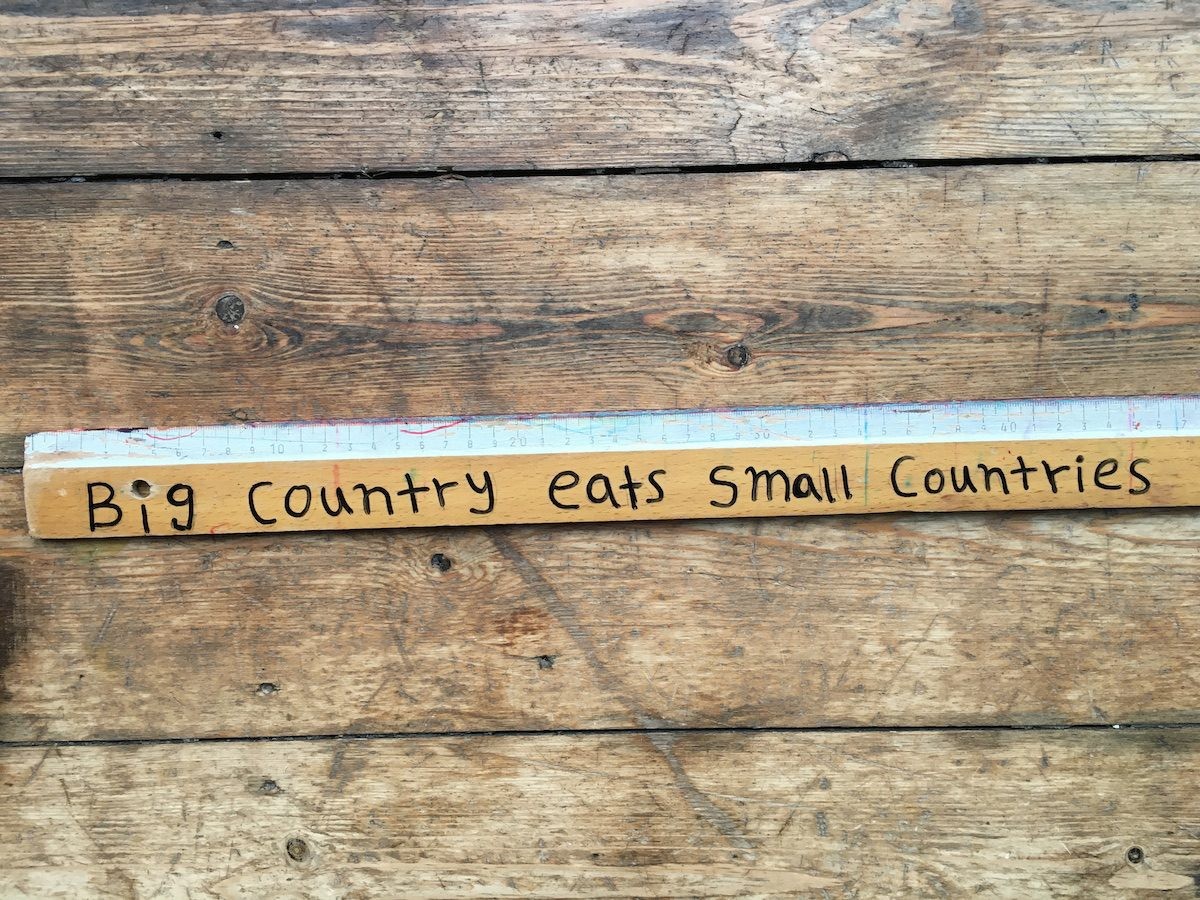 Big Country eats Small Countries